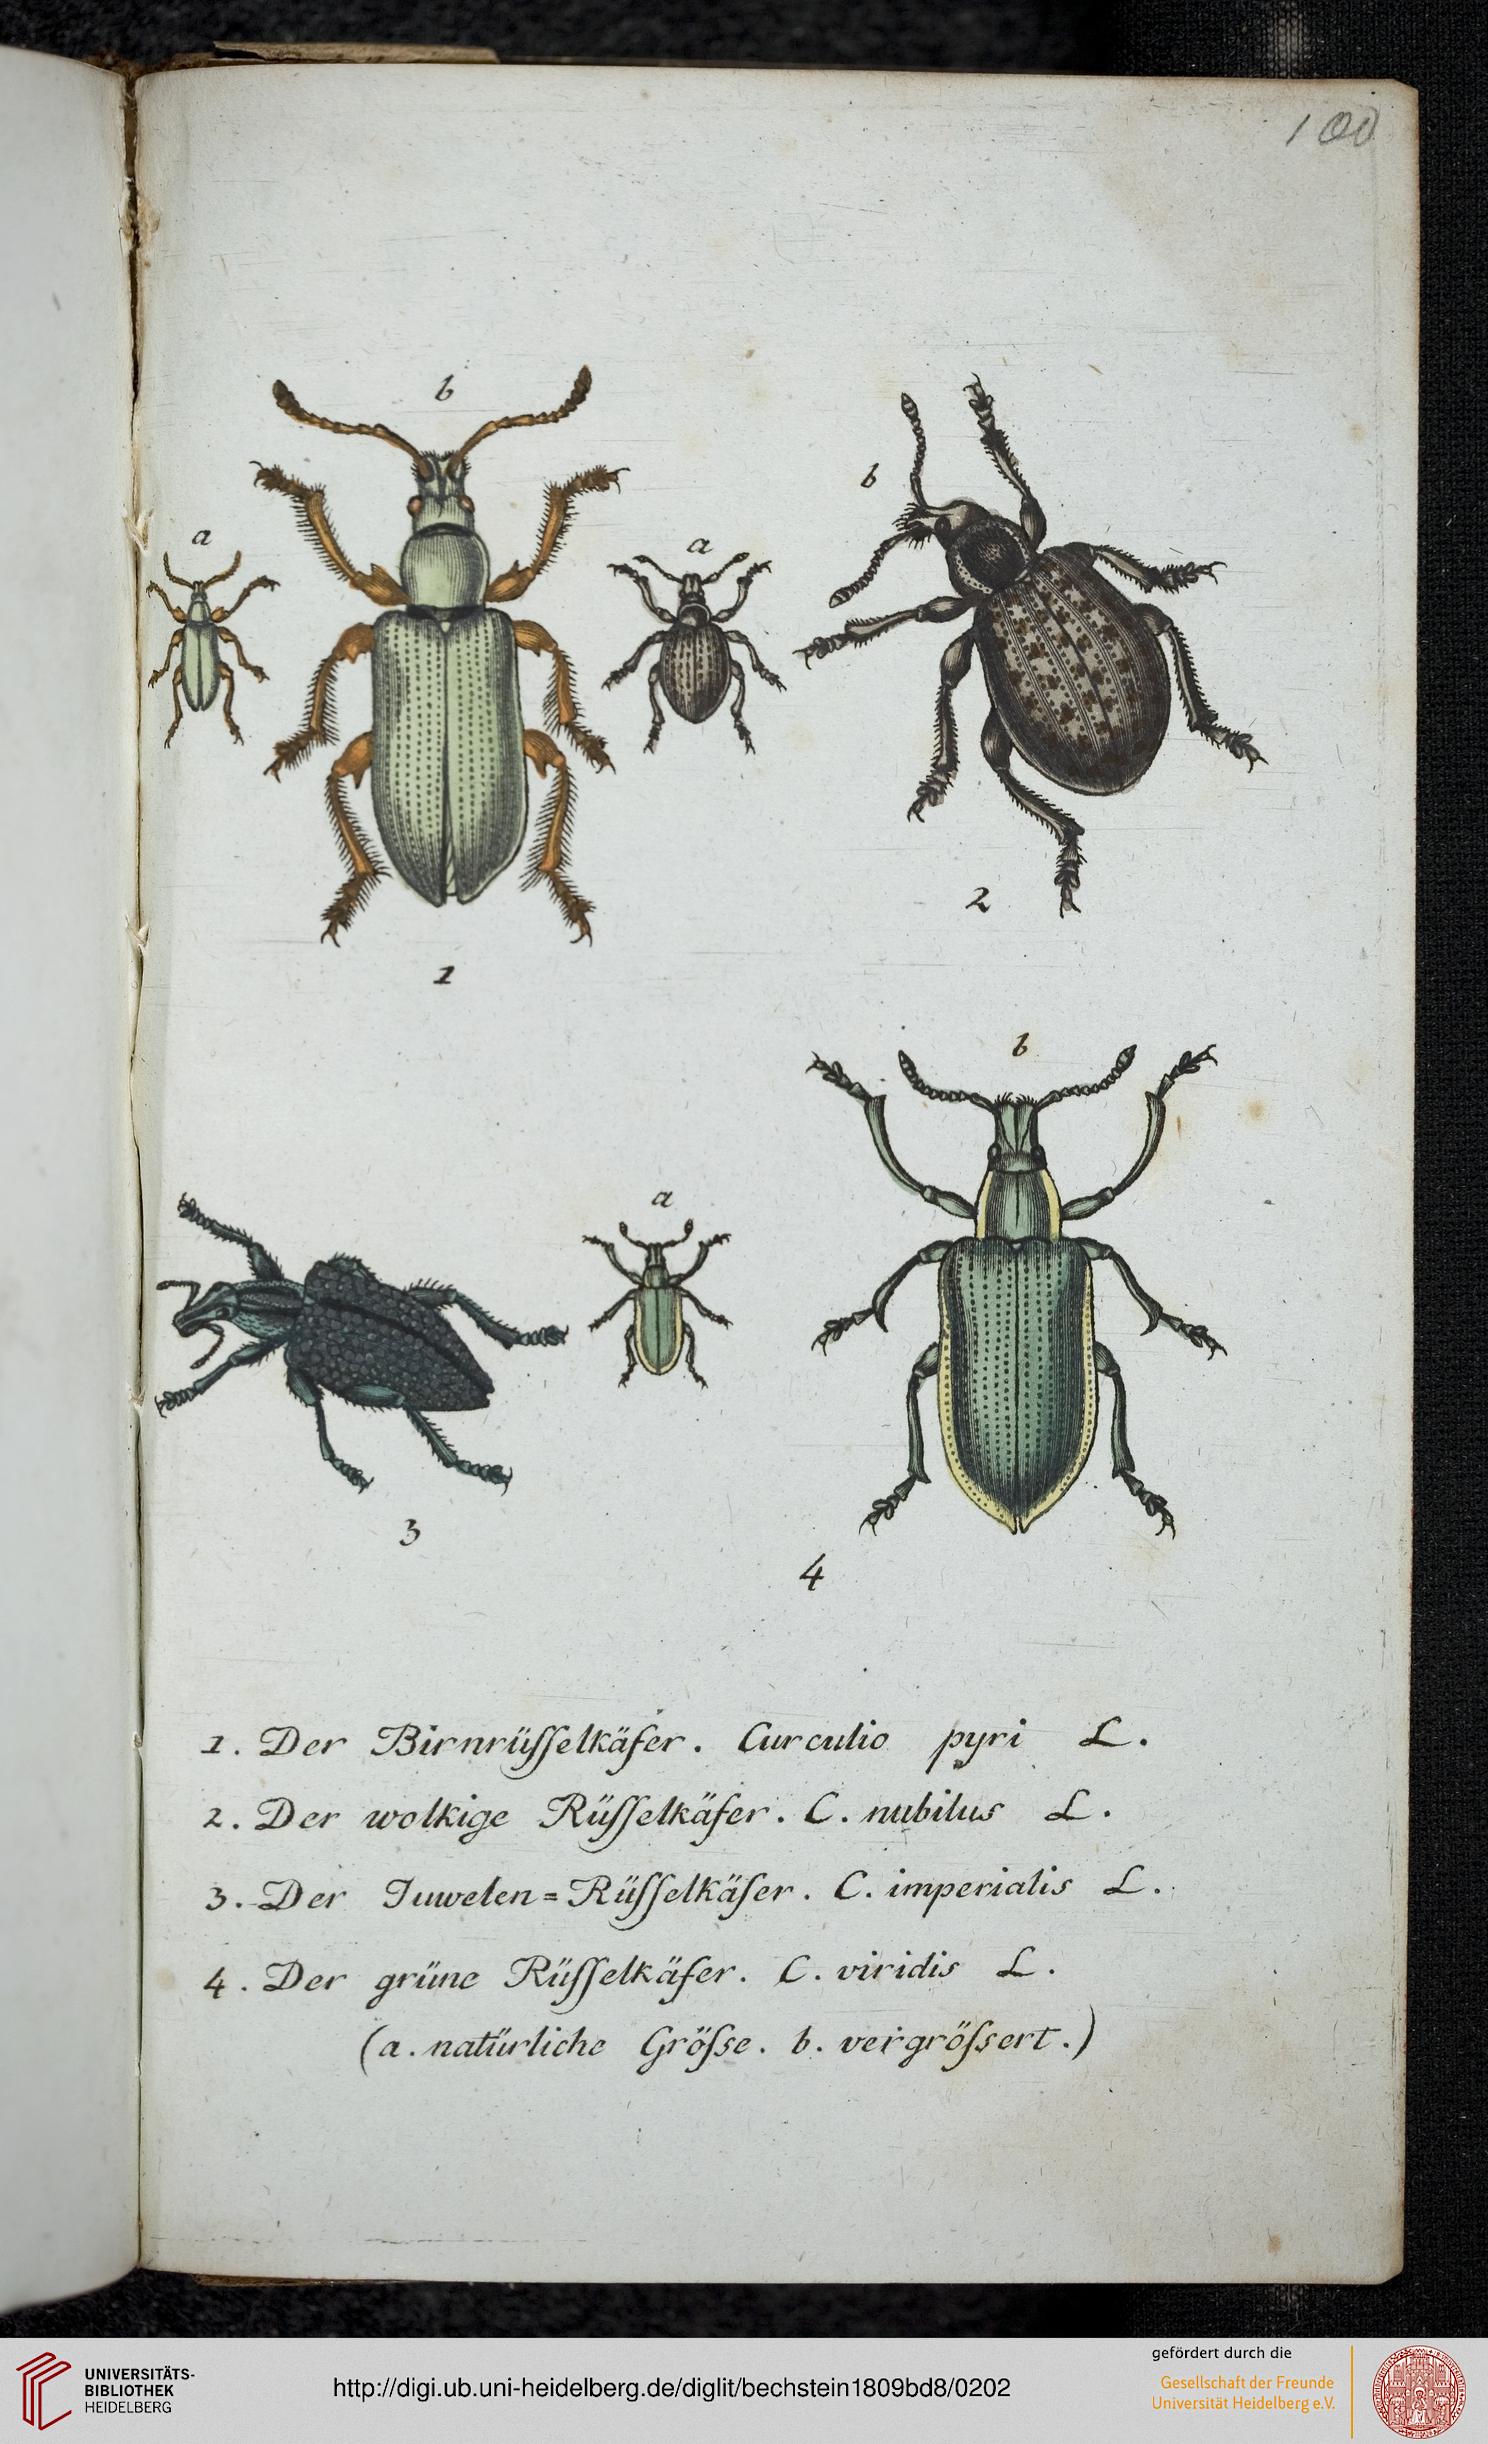 100
b
b
a
a
2
1
b
a
3
4
1. Der Birnrüſſelkäfer. Curculio pyri L.
2. Der wolkige Rüſſelkäfer. C. nubilus L.
3. Der Juwelen=Rüſſelkäfer. C. imperialis L.
4. Der grüne Rüſſelkäfer. C. viridis L.
(a. natürliche Gröſse. b. vergröſsert.)
UNIVERSITÄTS-
BIBLIOTHEK
HEIDELBERG
http://digi.ub.uni-heidelberg.de/diglit/bechstein1809bd8/0202
gefördert durch die
Gesellschaft der Freunde
Universität Heidelberg e.V.